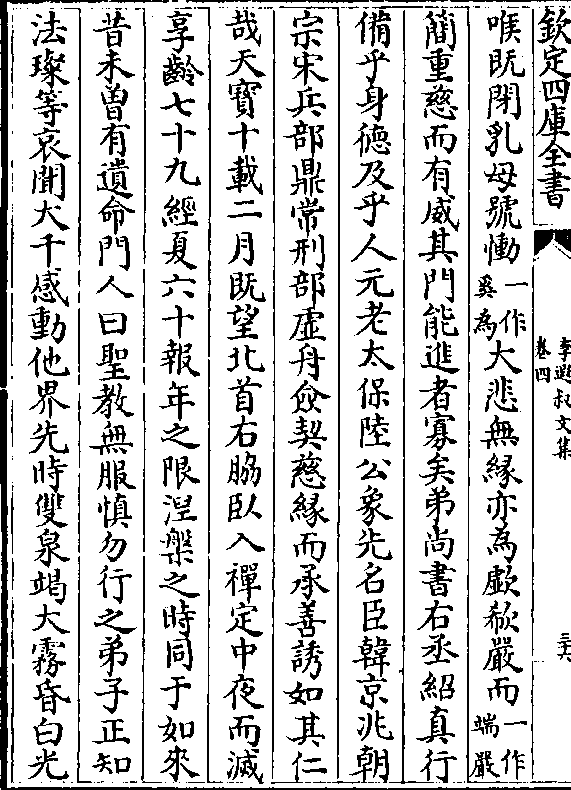 欽定四庫全書
李遐叔文集
卷四
三六
喉既閉乳母號慟一作奚為大悲無緣亦為歔欷嚴而一作端嚴
簡重慈而有威其門能進者寡矣弟尚書右丞紹真行
備乎身德及乎人元老太保陸公象先名臣韓京兆朝
宗宋兵部鼎常刑部虛舟僉契慈緣而承善誘如其仁
哉天寶十載二月既望北首右脇臥入禪定中夜而滅
享齡七十九經夏六十報年之限涅槃之時同于如來
昔未曽有遺命門人曰聖教無服慎勿行之弟子正知
法璨等哀聞大千感動他界先時雙泉竭大霧昏白光